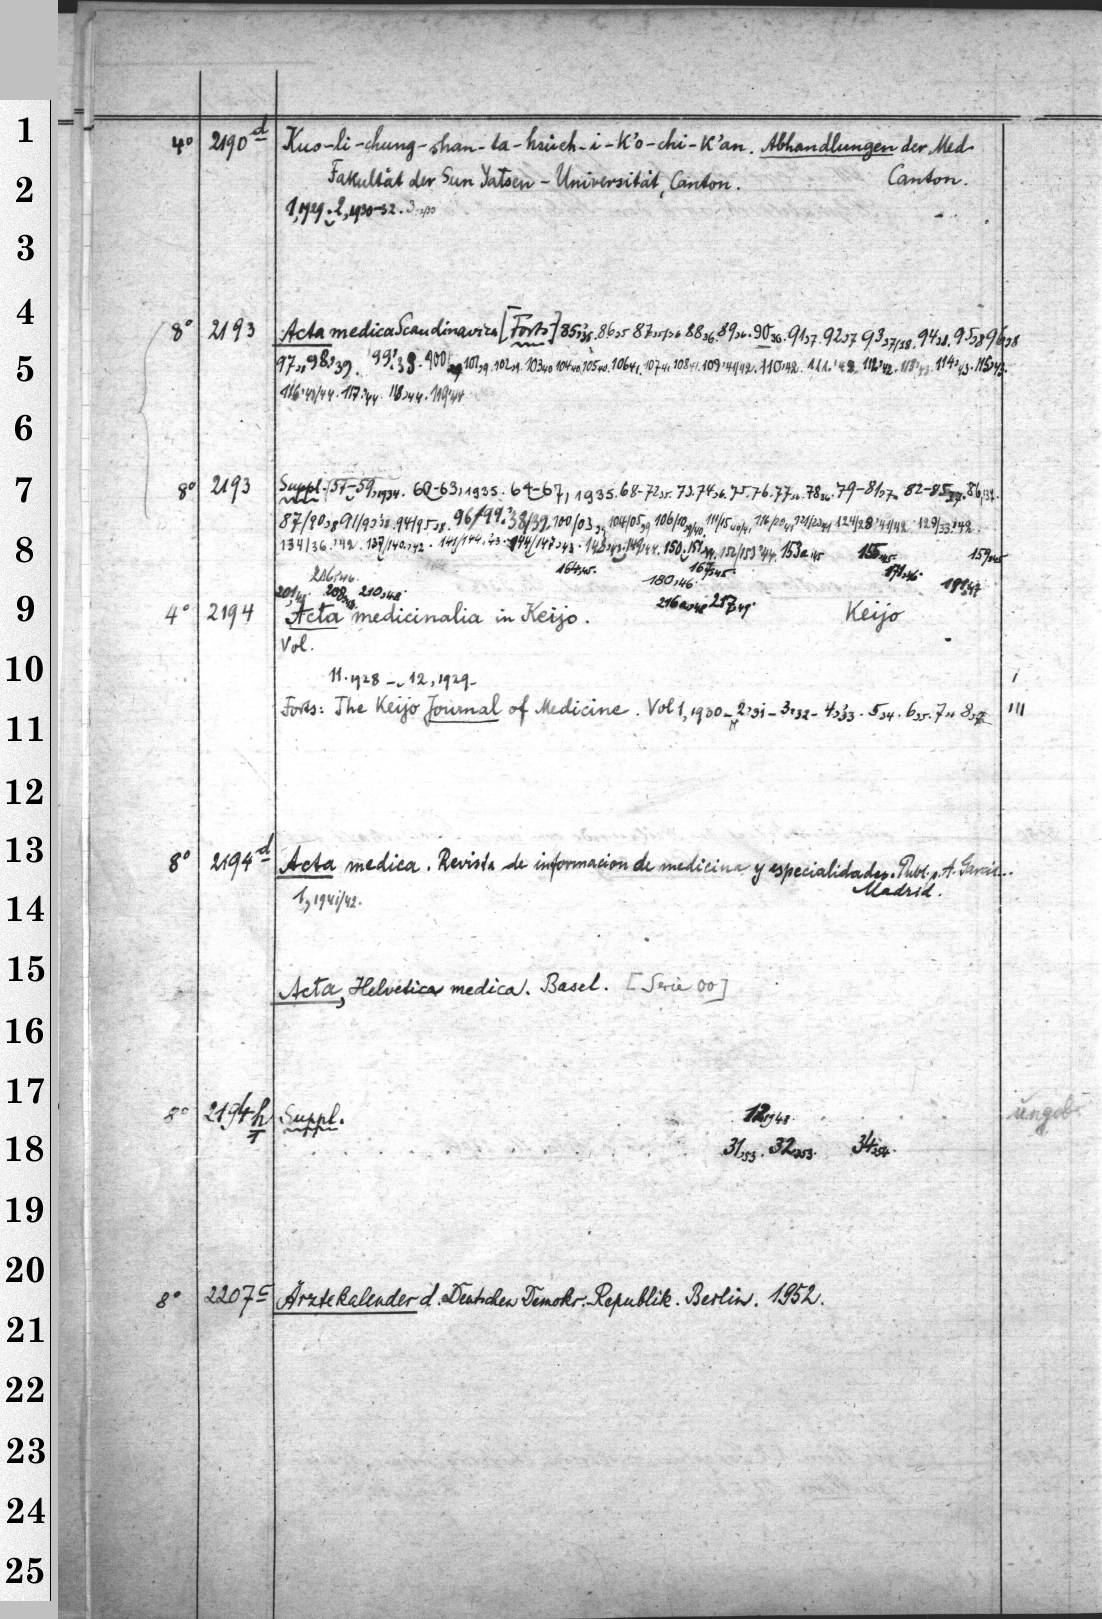 1
4° 2190d Kuo-li-chung-shan-ta-hsüeh-i-K'o-chi-K'an. Abhandlungen der Med.
2
Fakultät der Sun Yatsen-Universität, Canton. Canton.
1,1929. 2,1930-32.
3
4
8° 2193 Acta medica Scandinavica [Forts.] 85,35. 86,35 87,35/36 88,36. 89,36. 90,36. 91,37. 92,37 93,37/38. 94,38. 95,38 96,38
5
97,38. 98,39. 99,39. 100,39. 101,39. 102,39. 103,40 104,40. 105,40. 106,41. 107,41. 108,41. 109,41/42. 110,42. 111,42. 112,42. 113,43. 114,43. 115,43.
116,43/44. 117,44. 118,44. 119,44
6
7
8° 2193 Suppl. 57-59,1934. 60-63,1935. 64-67,1935. 68-72,35. 73. 74,36. 75. 76. 77,36. 78,36. 79-81,37. 82-85,37. 86,38.
87/90,38 91/93,38. 94/95,38. 96/99,38/39. 100/03,39. 104/05,39 106/10,39/40. 111/15,40/41. 116/20,41. 121/23,41 124/28,41/42. 129/33,42.
8
134/36,42. 137/140,42. 141/144,43. 144/147,43. 148,43. 149,44. 150. 151,44. 152/153,44. 153a,45 155,45. 159,45
164,45. 167,45. 171,46.
206,46. 180,46. 181,47
9
201,48. 208,48. 210,48. 216a,48 217,49.
4° 2194 Acta medicinalia in Keijo. Keijo
Vol.
10
11.1928 - 12,1929-
Forts: The Keijo Journal of Medicine. Vol 1,1930-2,31-3,32-4,33. 5,34. 6,35. 7,36 8,37
11
12
13
8° 2194d Acta medica. Revista de informacion de medicina y especialidades. Publ. p. A. Garcia..
Madrid.
14
1,1941/42.
15
Acta, Helvetica medica. Basel. [Serie 00]
16
17
8° 2194h Suppl. 12,1948. ungeb.
18
31,53. 32,53. 34,54.
19
20
8° 2207c Ärztekalender d. Deutschen Demokr. Republik. Berlin. 1952.
21
22
23
24
25